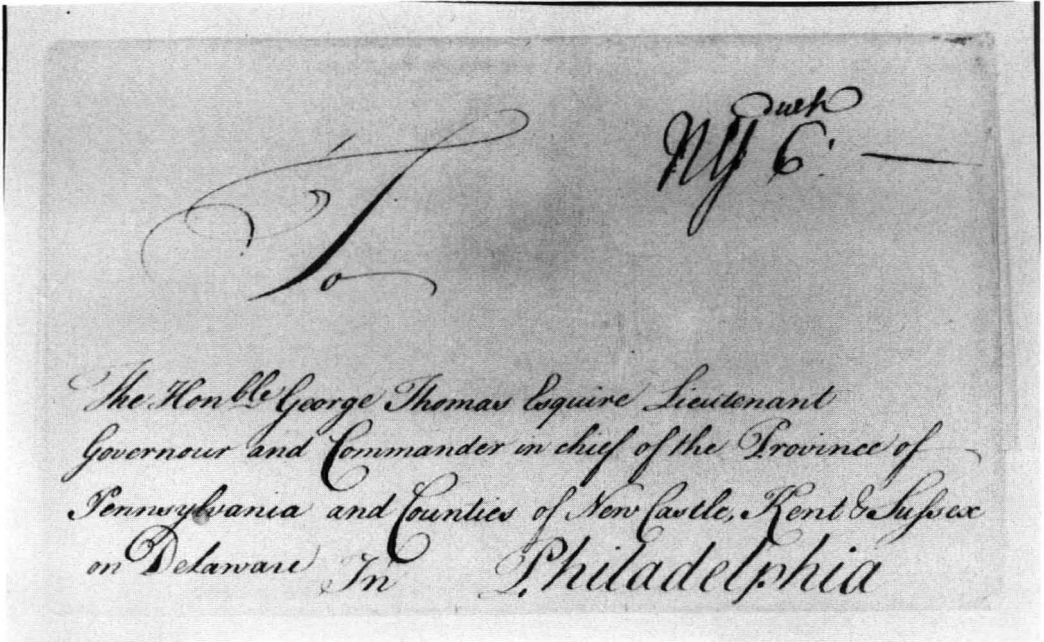 NY 6:
To
The Honble George Thomas Esquire Lieutenant
Governour and Commander in chief of the Province of
Pennsylvania and Counties of New Castle, Kent & Sussex
on Delaware In Philadelphia